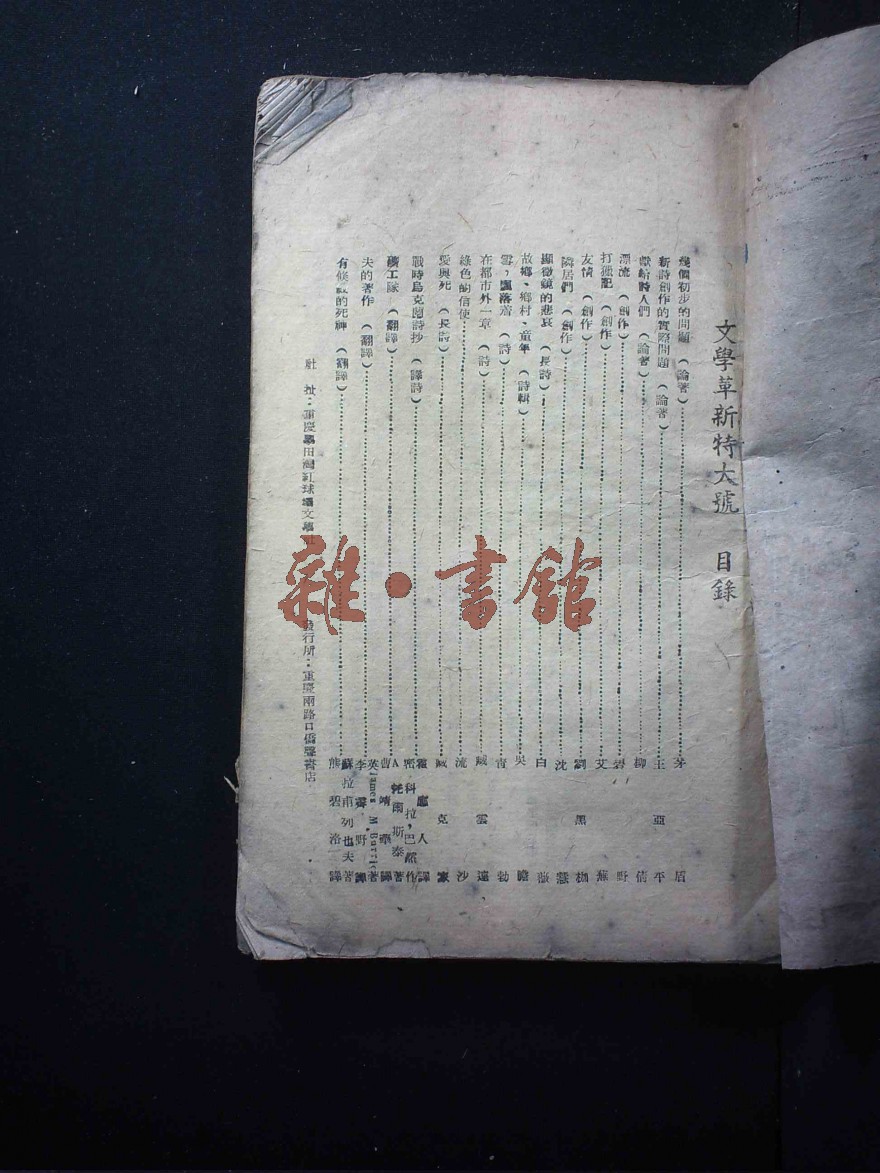 文學革新特大號 目錄
幾個初步的問題（論著）茅盾
新詩創作的實際問題（論著）王亞平
獻給詩人們（論著）柳倩
漂流（創作）碧野
打獵記（創作）艾蕪
友情（創作）劉黑枷
隣居們（創作）沈慧
顯微鏡的悲哀（長詩）白薇
故鄉、鄉村、童年（詩輯）吳瞻
雲，飄落着（詩）青勃
在都市外一章（詩）臧雲遠
綠色的信使 流沙
愛與死（長詩）臧克家
戰時烏克蘭詩抄（譯詩）科拉，巴然作 人譯
工隊（翻譯）A 托爾斯泰著 曹靖華譯
夫的著作（翻譯）英James M. Barrie著 李霽野譯
有條 的死神（翻譯）蘇拉甫列也夫著 熊碧洛譯
社址・重慶 田灣紅球壩文學社 發行所・重慶兩路口僑聲書店
雜・書館